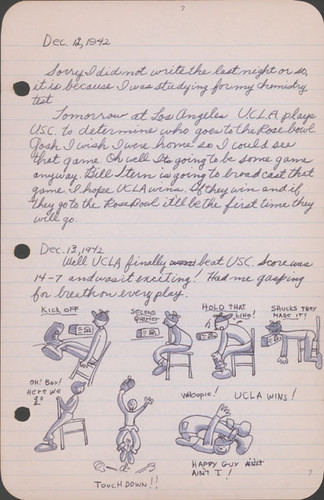 7
Dec. 12, 1942
Sorry I did not write the last night or so,
it is because I was studying for my chemistry
test
Tomorrow at Los Angeles UCLA plays
USC. to determine who goes to the Rose bowl
Gosh I wish I were home so I could see
that game. Oh well Its going to be some game
anyway. Bill Stern is going to broadcast that
game I hope UCLA wins. If they win and if
they go to the Rose Bowl it'll be the first time they
will go.
Dec. 13, 1942
Well UCLA finally beat USC. Score was
14-7 and was it exciting! Had me gasping
for breath on every play.
KICK OFF
SECOND QUARTER
HOLD THAT LINE!
SHUCKS THEY
MADE IT!
OH! BOY!
HERE WE
GO
WHOOPIE! UCLA WINS!
TOUCH DOWN!!
HAPPY GUY AINT
AIN'T I!
7